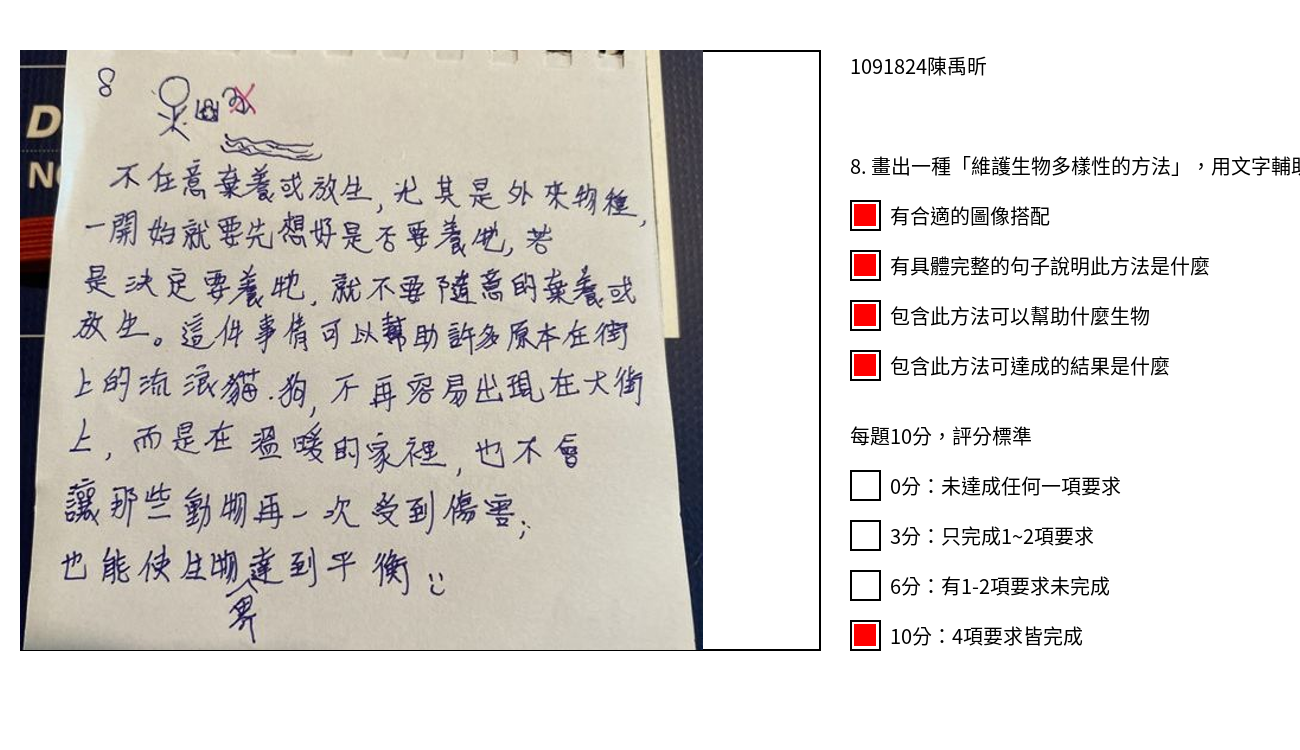 8
不任意棄養或放生,尤其是外來物種,
一開始就要先想好是否要養牠,若
是決定要養牠,就不要隨意的棄養或
放生。這件事情可以幫助許多原本在街
上的流浪貓.狗,不再容易出現在大街
上,而是在溫暖的家裡,也不會
讓那些動物再一次受到傷害;
也能使生物達到平衡
界
D
NO
1091824陳禹昕
8. 畫出一種「維護生物多樣性的方法」,用文字輔助
有合適的圖像搭配
有具體完整的句子說明此方法是什麼
包含此方法可以幫助什麼生物
包含此方法可達成的結果是什麼
每題10分,評分標準
0分:未達成任何一項要求
3分:只完成1~2項要求
6分:有1-2項要求未完成
10分:4項要求皆完成